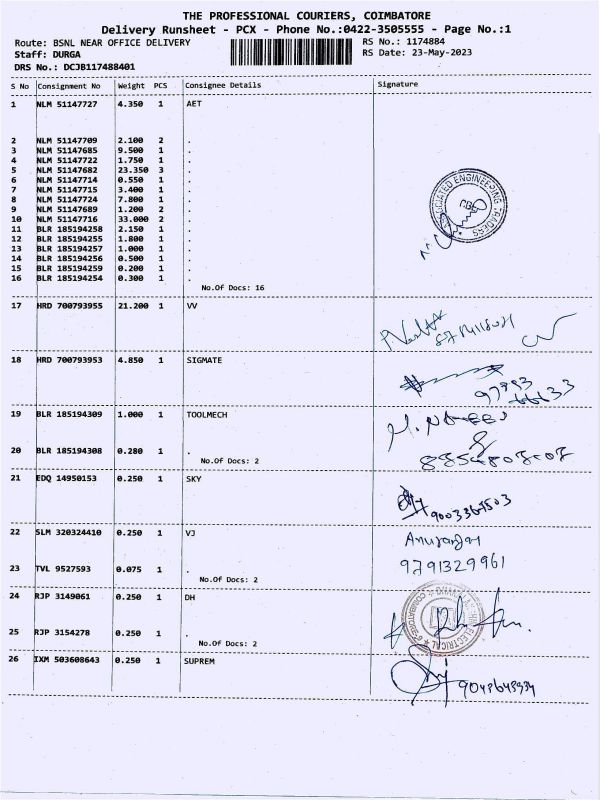 THE PROFESSIONAL COURIERS, COIMBATORE
Delivery Runsheet - PCX - Phone No.:0422-3505555 - Page No.:1
Route: BSNL NEAR OFFICE DELIVERY
RS No.: 1174884
Staff: DURGA
RS Date: 23-May-2023
DRS No.: DCJB117488401
S No Consignment No Weight PCS Consignee Details Signature
1 NLM 51147727 4.350 1 AET
2 NLM 51147709 2.100 2 .
3 NLM 51147685 9.500 1 .
4 NLM 51147722 1.750 1 .
5 NLM 51147682 23.350 3 .
6 NLM 51147714 0.550 1 .
7 NLM 51147715 3.400 1 .
8 NLM 51147724 7.800 1 .
9 NLM 51147689 1.200 2 .
10 NLM 51147716 33.000 2 .
11 BLR 185194258 2.150 1 .
12 BLR 185194255 1.800 1 .
13 BLR 185194257 1.000 1 .
14 BLR 185194256 0.500 1 .
15 BLR 185194259 0.200 1 .
16 BLR 185194254 0.300 1 .
No.Of Docs: 16
ASSOCIATED ENGINEERING TRADERS
CBE
17 HRD 700793955 21.200 1 VV
18 HRD 700793953 4.850 1 SIGMATE
19 BLR 185194309 1.000 1 TOOLMECH
20 BLR 185194308 0.280 1 .
No.Of Docs: 2
21 EDQ 14950153 0.250 1 SKY
22 SLM 320324410 0.250 1 VJ
23 TVL 9527593 0.075 1 .
9791329961
No.Of Docs: 2
24 RJP 3149061 0.250 1 DH
25 RJP 3154278 0.250 1 .
No.Of Docs: 2
ELECTRICAL
26 IXM 503608643 0.250 1 SUPREM